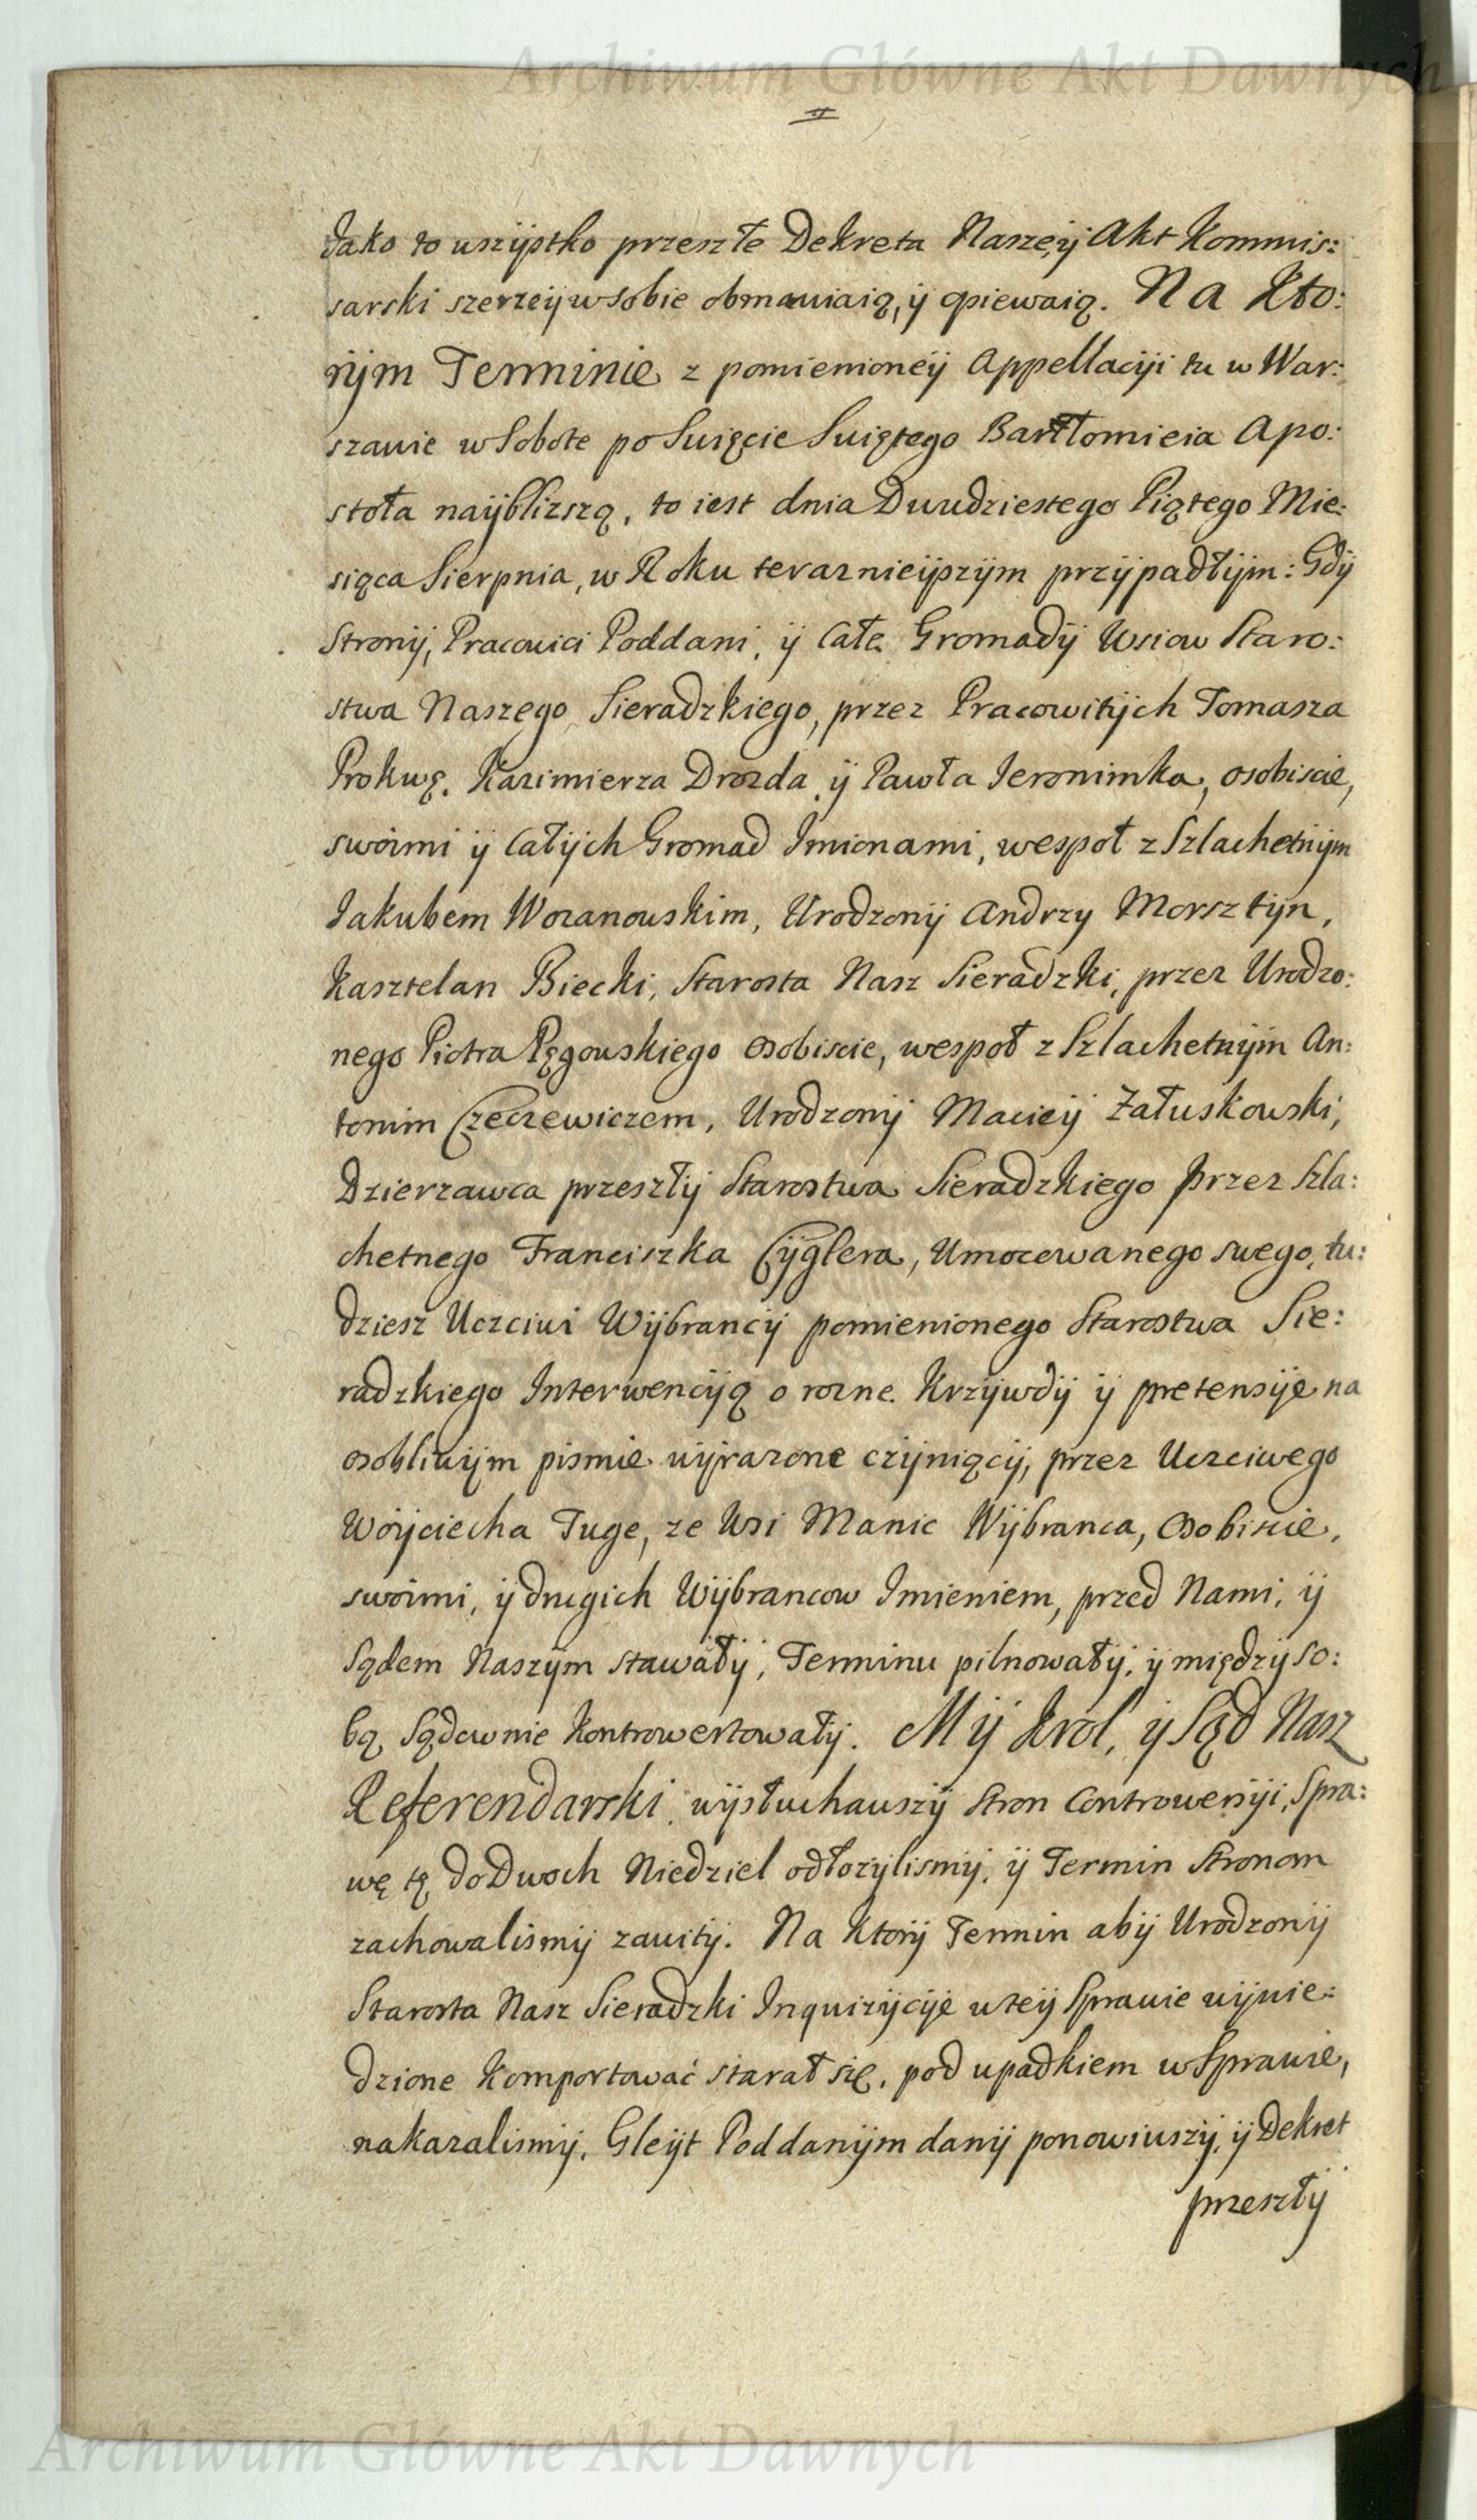 Archiwum Główne Akt Dawnych
Jako to wszystko przeszłe Dekreta Naszeÿ Akt Kommis:
sarski szerzeÿ w Sobie obmawiaią, ÿ opiewaią. Na Kto:
rÿm Terminie z pomienioneÿ Appellacÿi tu w War:
szawie w Sobote po Swięcie Swiętego Bartłomieia Apo:
stoła naÿblizszą, to iest dnia Dwudziestego Piątego Mie:
siąca Sierpnia, w Roku teraznieÿszÿm przÿpadłÿm: Gdÿ
Stronÿ, Pracowici Poddani, ÿ Całe Gromadÿ Wsiow Staro:
stwa Naszego Sieradzkiego, przez Pracowitÿch Tomasza
Prokwę, Kazimierza Drozda ÿ Pawła Jeronimka, osobiscie,
swoimi ÿ Całÿch Gromad Imionami, wespoł z Szlachetnÿm
Jakubem Wozanowskim, Urodzonÿ Andrzy Morsztÿn,
Kasztelan Biecki, Starosta Nasz Sieradzki, przez Urodzo:
nego Piotra Pęgowskiego Osobiscie, wespoł z Szlachetnÿm An:
tonim Czeczewiczem, Urodzonÿ Macieÿ Załuskowski,
Dzierzawca przeszłÿ Starostwa Sieradzkiego przez Szla:
chetnego Franciszka Cÿglera, Umocowanego swego, tu:
dziesz Uczciwi Wÿbrancÿ pomienionego Starostwa Sie:
radzkiego Interwencÿą o rozne Krzÿwdÿ ÿ pretensÿe na
osobliwÿm pismie wÿrazone czÿniącÿ, przez Uczciwego
Woÿciecha Tuge, ze Wsi Manic Wÿbranca, Osobiscie,
swoimi, ÿ drugich Wÿbrancow Imieniem, przed Nami, ÿ
Sądem Naszÿm stawałÿ, Terminu pilnowałÿ, ÿ międzÿ so:
bą Sądownie Kontrowertowałÿ. Mÿ Krol, ÿ Sąd Nasz
Referendarski wÿsłuchawszÿ Stron Controwersÿi, Spra:
wę tę do Dwoch Niedziel odłozÿlismÿ, ÿ Termin Stronom
zachowalismÿ zawitÿ. Na Ktorÿ Termin abÿ Urodzonÿ
Starosta Nasz Sieradzki Inquizÿcÿe w teÿ Sprawie wÿwie:
dzione Komportować starał się, pod upadkiem w Sprawie,
nakazalismÿ, Gleÿt Poddanÿm danÿ ponowiwszÿ, ÿ Dekret
przeszłÿ
Archiwum Główne Akt Dawnych